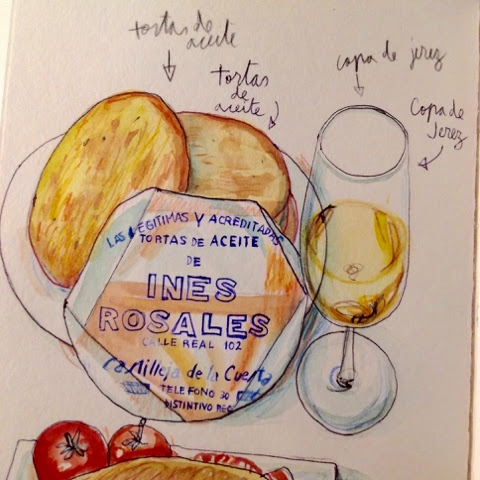 tortas de
aceite
tortas
de
aceite
copa de jerez
Copa de
Jerez
LAS LEGITIMAS Y ACREDITADAS
TORTAS DE ACEITE
DE
INES
ROSALES
CALLE REAL 102
Castilleja de la Cuesta
TELEFONO 30
DISTINTIVO REG